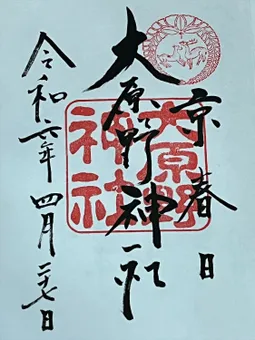 京春日
大原野神社
大原野
神社
令和六年四月二十七日